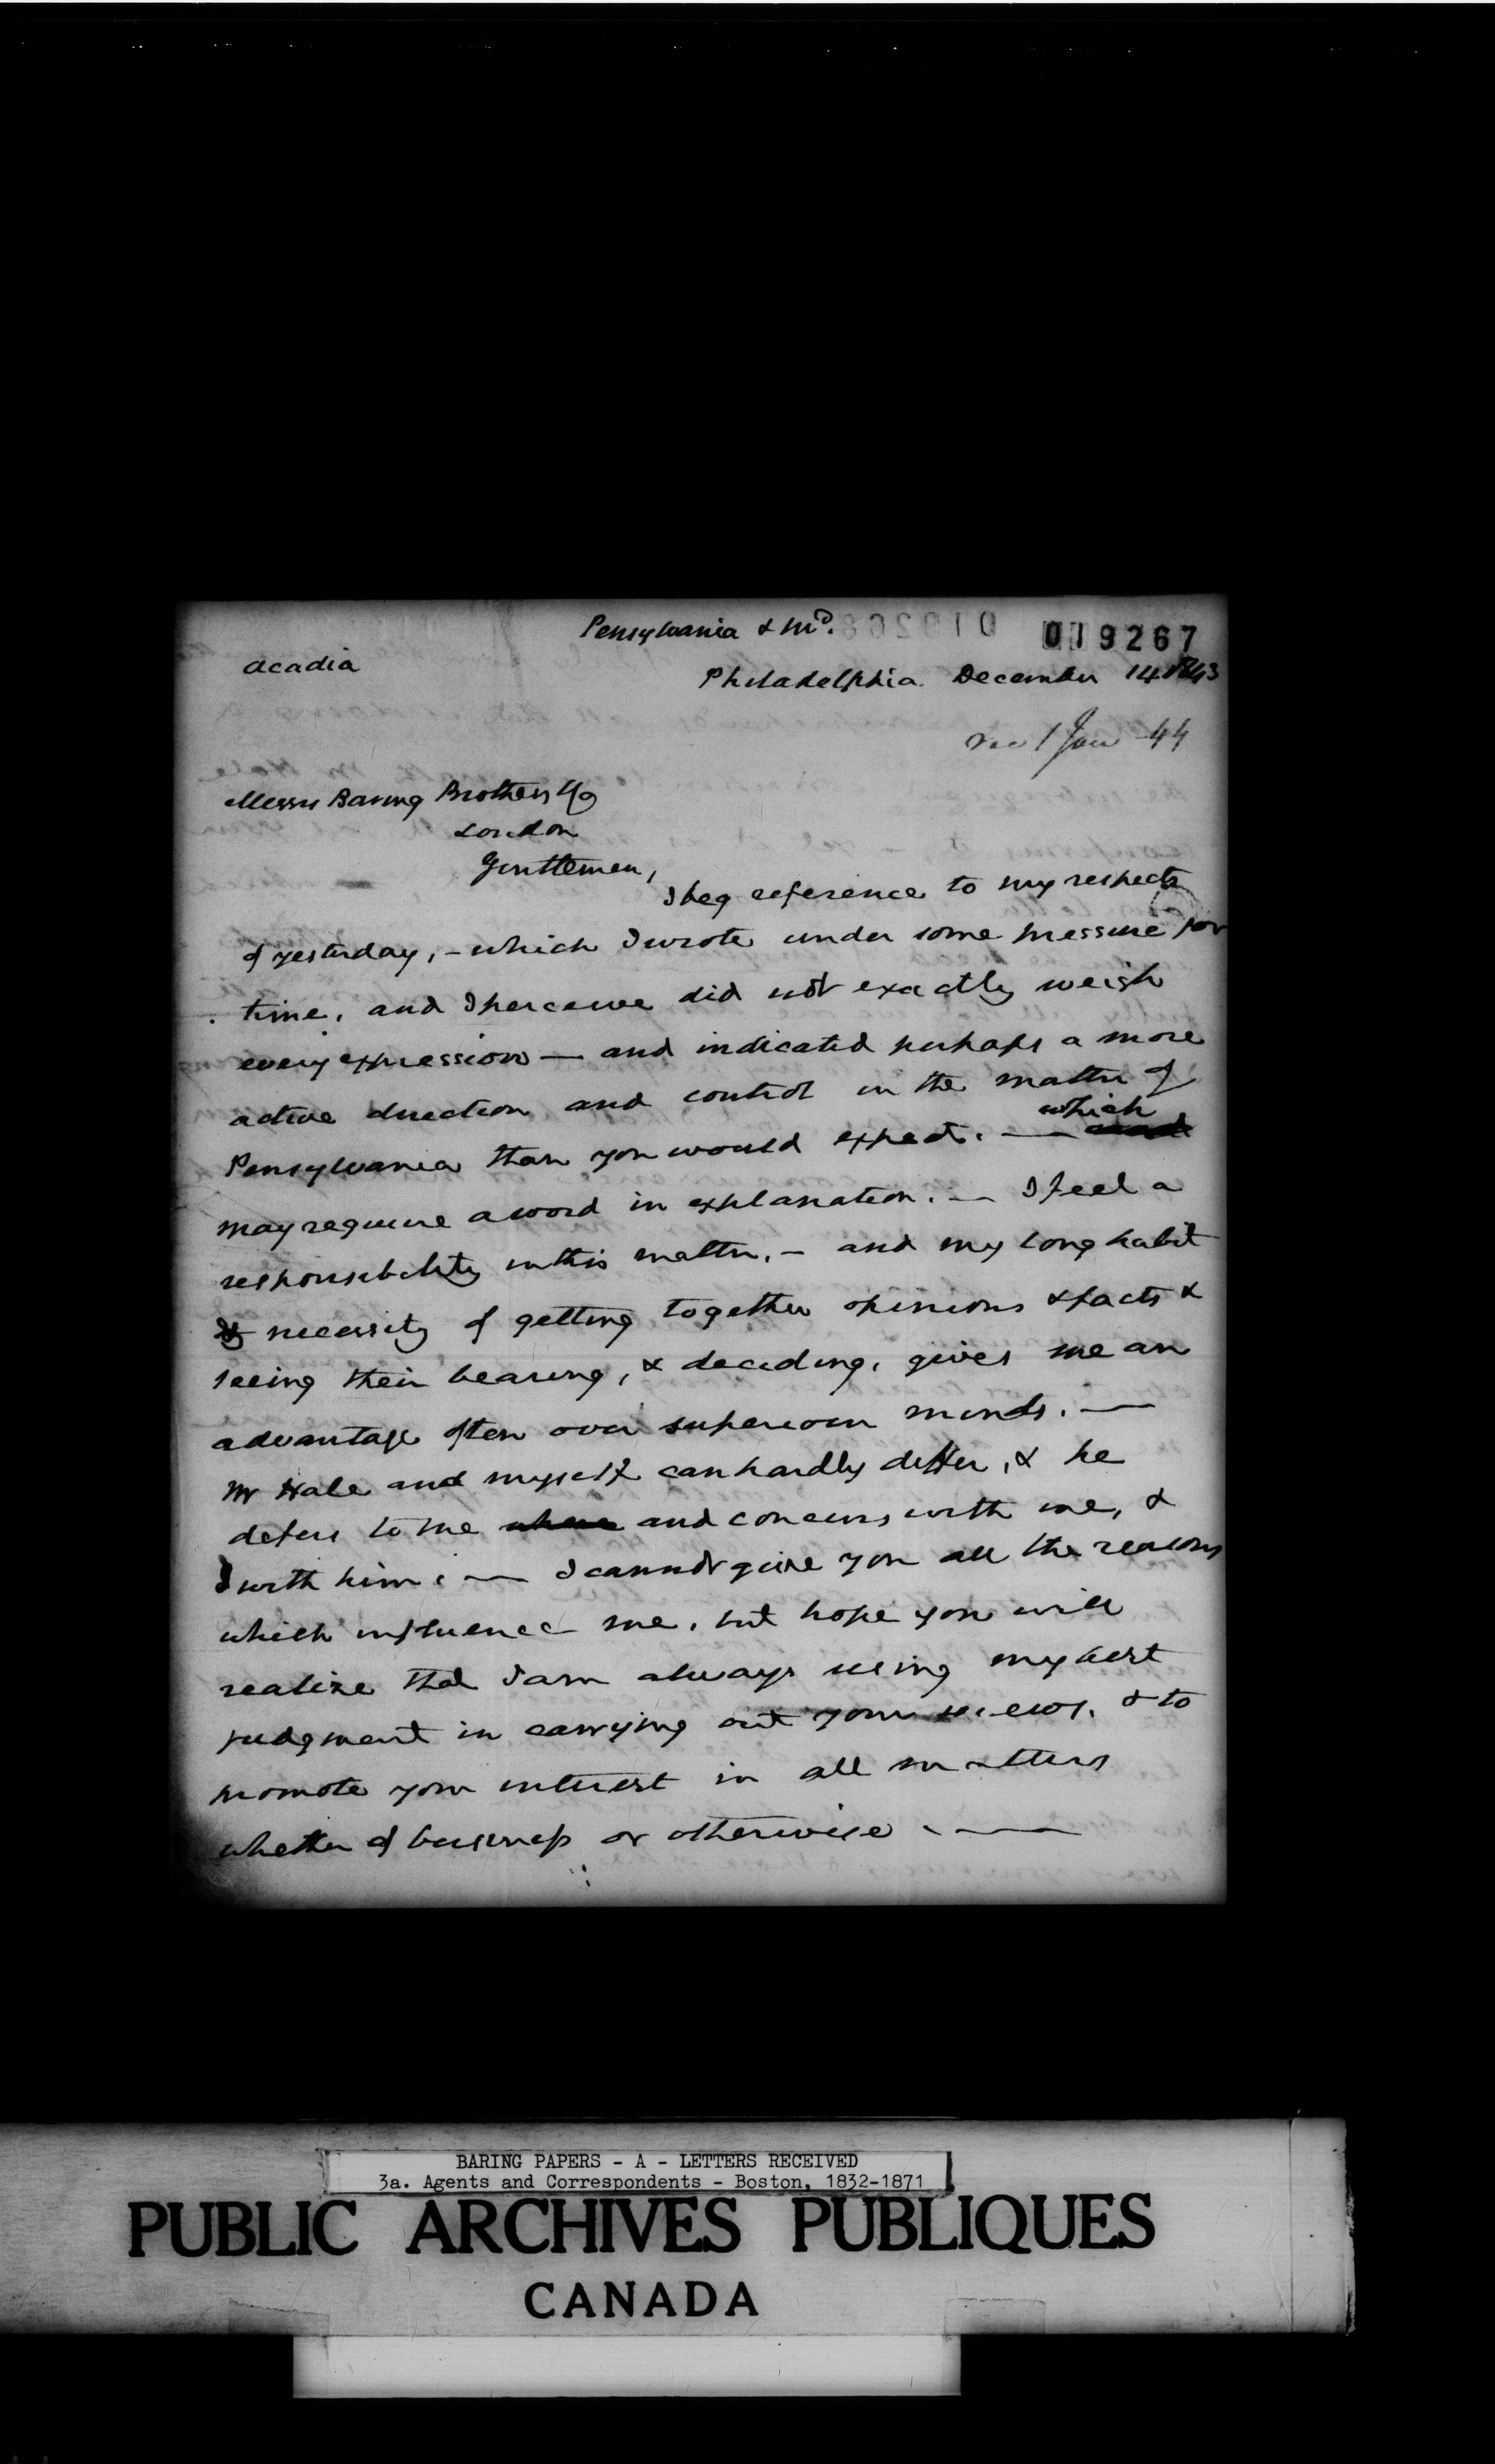 Pensylvania & Md.
019267
Acadia
Philadelphia December 14 1843
rec 1 Jan 44
Messrs Baring Brothers & Co
London
Gentlemen,
I beg reference to my respects
of yesterday, - which I wrote under some pressure for
time, and I perceive did not exactly weigh
every expression — and indicated perhaps a more
active direction and control in the matter of
which
Pensylvania than you would expect. —
may require a word in explanation. — I feel a
responsibility in this matter. - and my long habit
& necessity of getting together opinions & facts &
seeing their bearing, & deciding, gives me an
advantage often over superiour minds. —
Mr Hale and myself can hardly differ, & he
defers to me and concurs with me, &
I with him. — I cannot give you all the reasons
which influence me, but hope you will
realize that I am always using my best
judgment in carrying out your views, & to
promote your interest in all matters
whether of business or otherwise. —
BARING PAPERS - A - LETTERS RECEIVED
3a. Agents and Correspondents - Boston, 1832-1871
PUBLIC ARCHIVES PUBLIQUES
CANADA